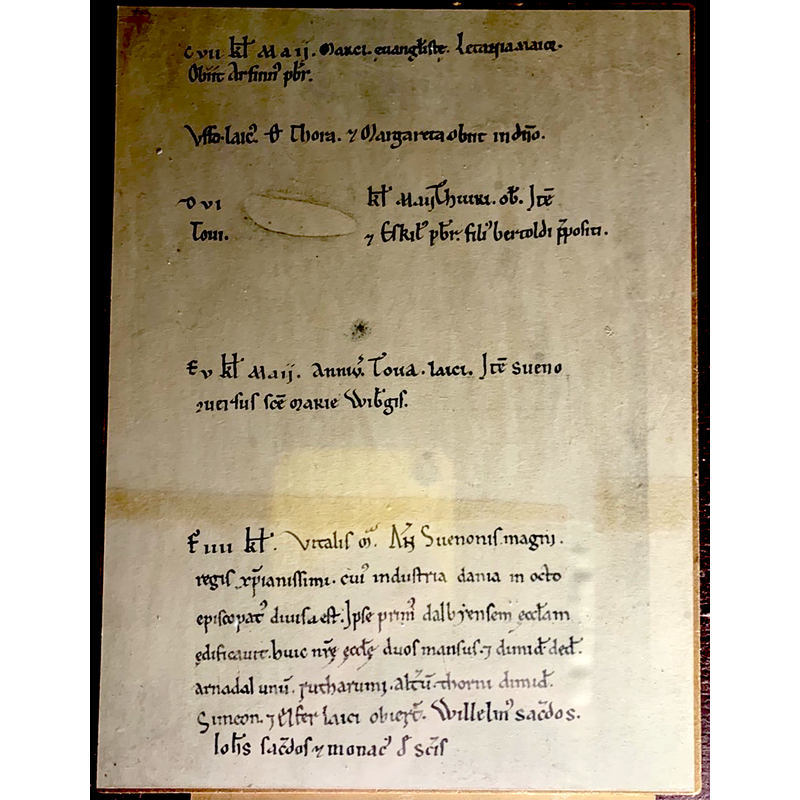 c vii kł Maij. Marci. euangeliste. Letania maior.
Obiit Asfinus pbr.
Vffo laic'. & Thora. ⁊ Margareta obiit in dno.
D vi kł Maij Thiuri. ob. Itē
Toui. ⁊ Eskil' pbr. fili' bertoldi ppositi.
E v kł Maij. Anniv'. Toua. laici. Itē sueno
sce marie Wibgis.
F iiii kł. Vitalis m'. Suenonis magni.
regis xpianissimi. cui' industria dania in octo
episcopat' diuisa est. Ipse prim' dalbyensem ęccłam
ędificauit. huic nrę ęccłę duos mansus. ⁊ dimid' ded'.
arnadal unū. rutharum. altū. thorm dimid'.
Simeon. ⁊ Esfer laici obiert. Willelm' sacdos.
Iohs sacdos ⁊ monac' scis